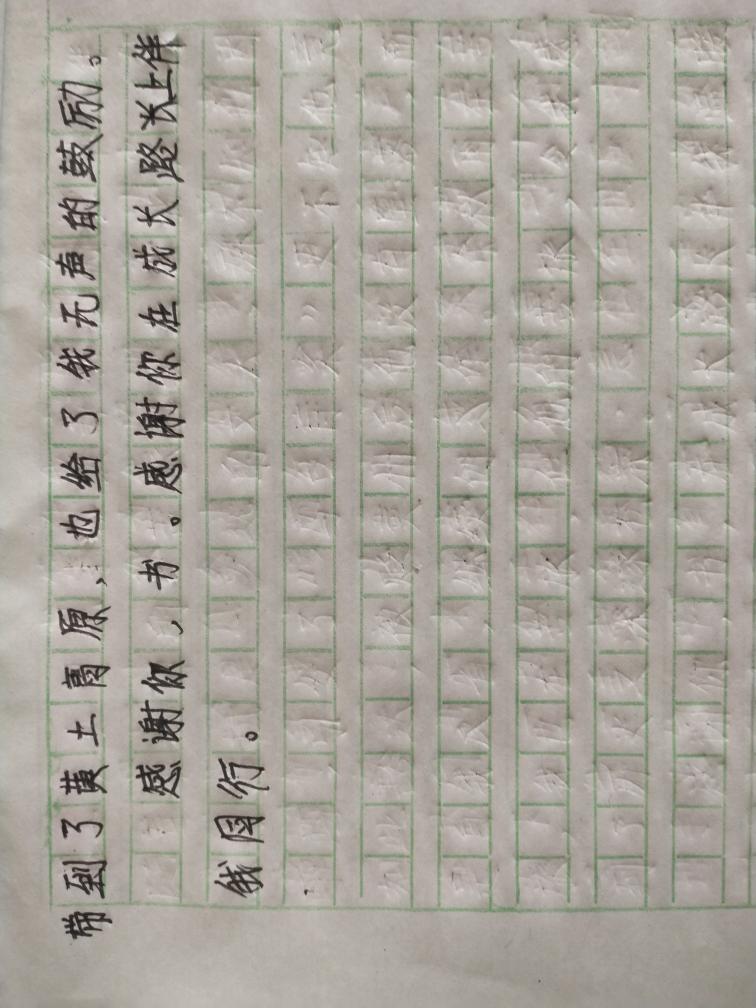 带到了黄土高原，也给了我无声的鼓励。
感谢你，书。感谢你在成长路长上伴
我同行。